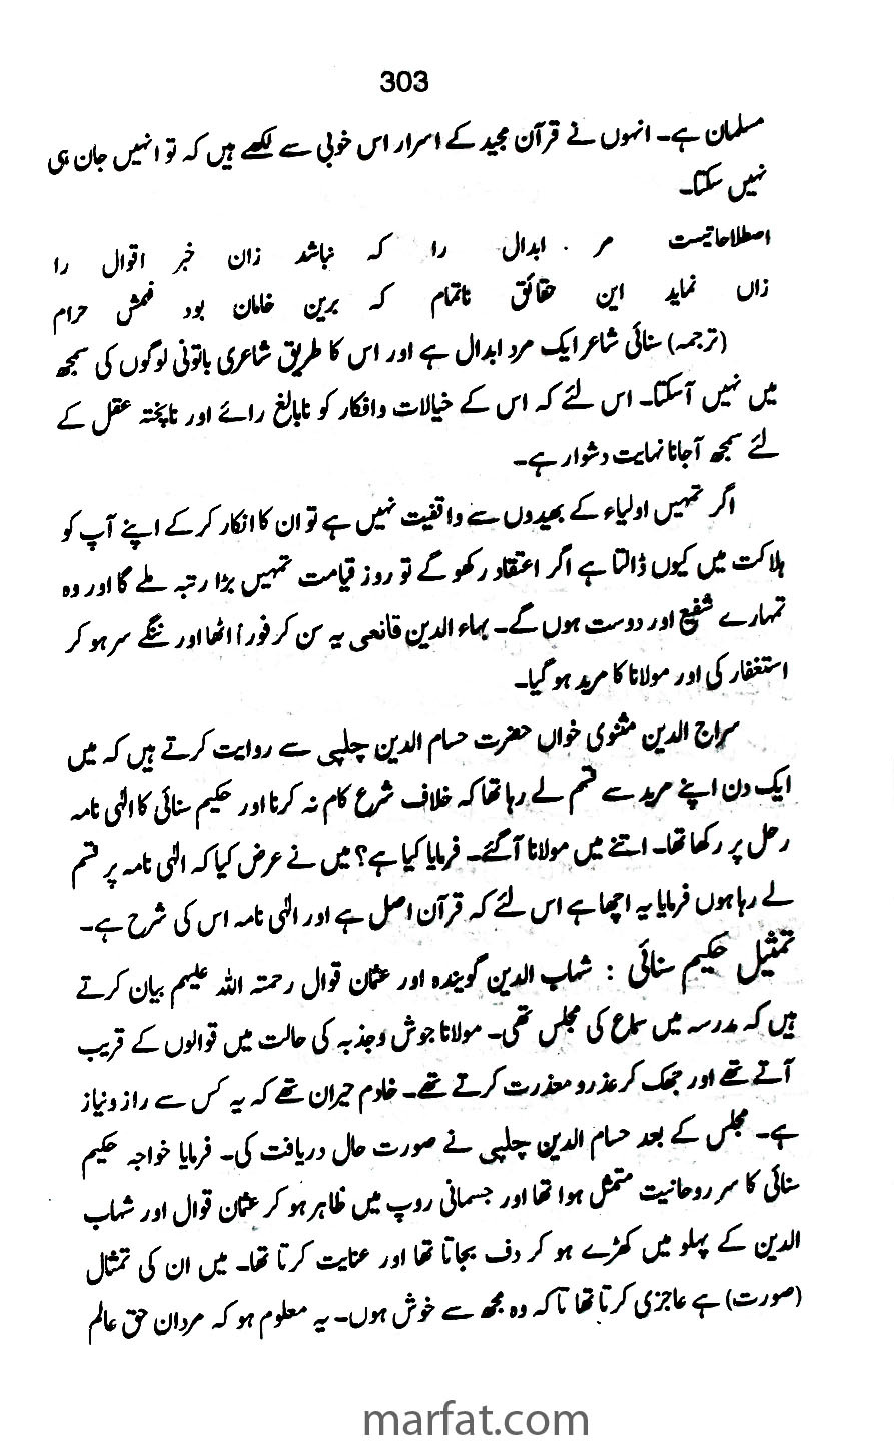 303
مسلمان ہے۔ انہوں نے قرآن مجید کے اسرار اس خوبی سے لکھے ہیں کہ تو انہیں جان ہی
نہیں سکتا۔
اصطلاحاتیست مر ابدال را کہ نباشد زان خبر اقوال را
زاں نماید این حقائق ناتمام کہ برین خامان بود فہمش حرام
(ترجمہ) سنائی شاعر ایک مرد ابدال ہے اور اس کا طریق شاعری باتونی لوگوں کی سمجھ
میں نہیں آسکتا۔ اس لئے کہ اس کے خیالات وافکار کو نابالغ رائے اور ناپختہ عقل کے
لئے سمجھ آجانا نہایت دشوار ہے۔
اگر تمہیں اولیاء کے بھیدوں سے واقفیت نہیں ہے تو ان کا انکار کر کے اپنے آپ کو
ہلاکت میں کیوں ڈالتا ہے اگر اعتقاد رکھو گے تو روز قیامت تمہیں بڑا رتبہ ملے گا اور وہ
تمہارے شفیع اور دوست ہوں گے۔ بہاء الدین قانعی یہ سن کر فوراً اٹھا اور ننگے سر ہو کر
استغفار کی اور مولانا کا مرید ہو گیا۔
سراج الدین مثنوی خواں حضرت حسام الدین چلپی سے روایت کرتے ہیں کہ میں
ایک دن اپنے مرید سے قسم لے رہا تھا کہ خلاف شرع کام نہ کرنا اور حکیم سنائی کا الٰہی نامہ
رحل پر رکھا تھا۔ اتنے میں مولانا آگئے۔ فرمایا کیا ہے؟ میں نے عرض کیا کہ الٰہی نامہ پر قسم
لے رہا ہوں فرمایا یہ اچھا ہے اس لئے کہ قرآن اصل ہے اور الٰہی نامہ اس کی شرح ہے۔
تمثیل حکیم سنائی : شہاب الدین گویندہ اور عثمان قوال رحمتہ اللہ علیہم بیان کرتے
ہیں کہ مدرسہ میں سماع کی مجلس تھی۔ مولانا جوش وجذبہ کی حالت میں قوالوں کے قریب
آتے تھے اور جھک کر عذرو معذرت کرتے تھے۔ خادم حیران تھے کہ یہ کس سے راز ونیاز
ہے۔ مجلس کے بعد حسام الدین چلپی نے صورت حال دریافت کی۔ فرمایا خواجہ حکیم
سنائی کا سر روحانیت متمثل ہوا تھا اور جسمانی روپ میں ظاہر ہو کر عثمان قوال اور شہاب
الدین کے پہلو میں کھڑے ہو کر دف بجاتا تھا اور عنایت کرتا تھا۔ میں ان کی تمثال
(صورت) ہے عاجزی کرتا تھا تا کہ وہ مجھ سے خوش ہوں۔ یہ معلوم ہو کہ مردان حق عالم
marfat.com